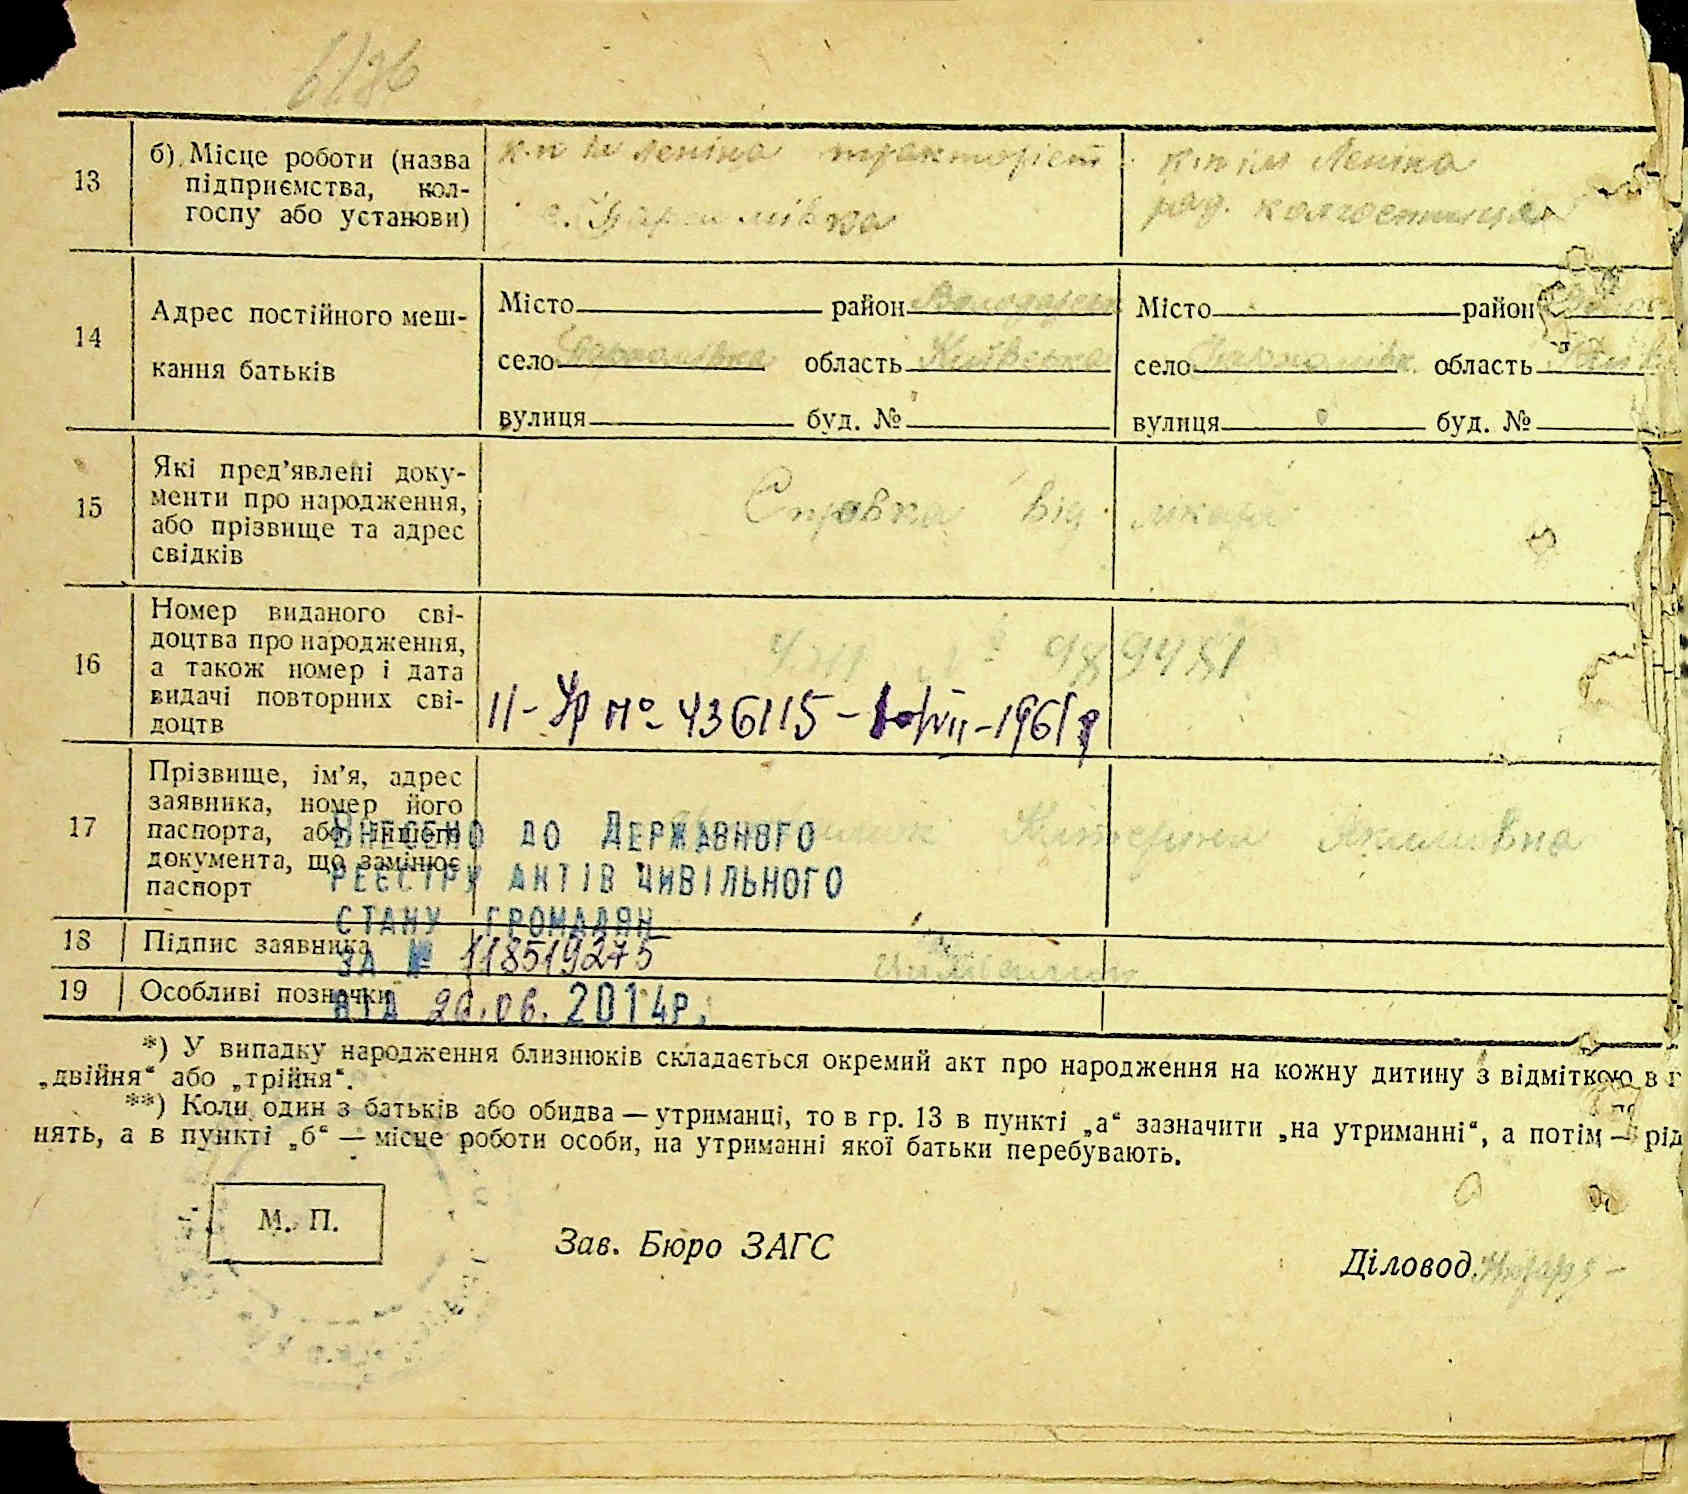 13
б) Місце роботи (назва
підприємства, кол-
госпу або установи)
к-п ім Леніна тракторіст
с.
к-п ім Леніна
ряд. колгоспниця
14
Адрес постійного меш-
кання батьків
Місто район Володарськ
село Пархомівка область Київська
вулиця буд. №
Місто район
село Пархомівк область
вулиця буд. №
15
Які пред’явлені доку-
менти про народження,
або прізвище та адрес
свідків
Справка від лікаря
16
Номер виданого сві-
доцтва про народження,
а також номер і дата
видачі повторних сві-
доцтв
№ 989481
II-УР № 436115 - VII-1961р
17
Прізвище, ім’я, адрес
заявника, номер його
паспорта, або іншого
документа, що замінює
паспорт
Катерина Якимовна
Внесено до Державного
реєстру актів цивільного
стану громадян
за № 118519275
від 20.06.2014р.
18
Підпис заявника
19
Особливі позначки
*) У випадку народження близнюків складається окремий акт про народження на кожну дитину з відміткою в г
„двійня“ або „трійня“.
**) Коли один з батьків або обидва — утриманці, то в гр. 13 в пункті „а“ зазначити „на утриманні“, а потім — рід
нять, а в пункті „б“ — місце роботи особи, на утриманні якої батьки перебувають.
М. П.
Зав. Бюро ЗАГС
Діловод